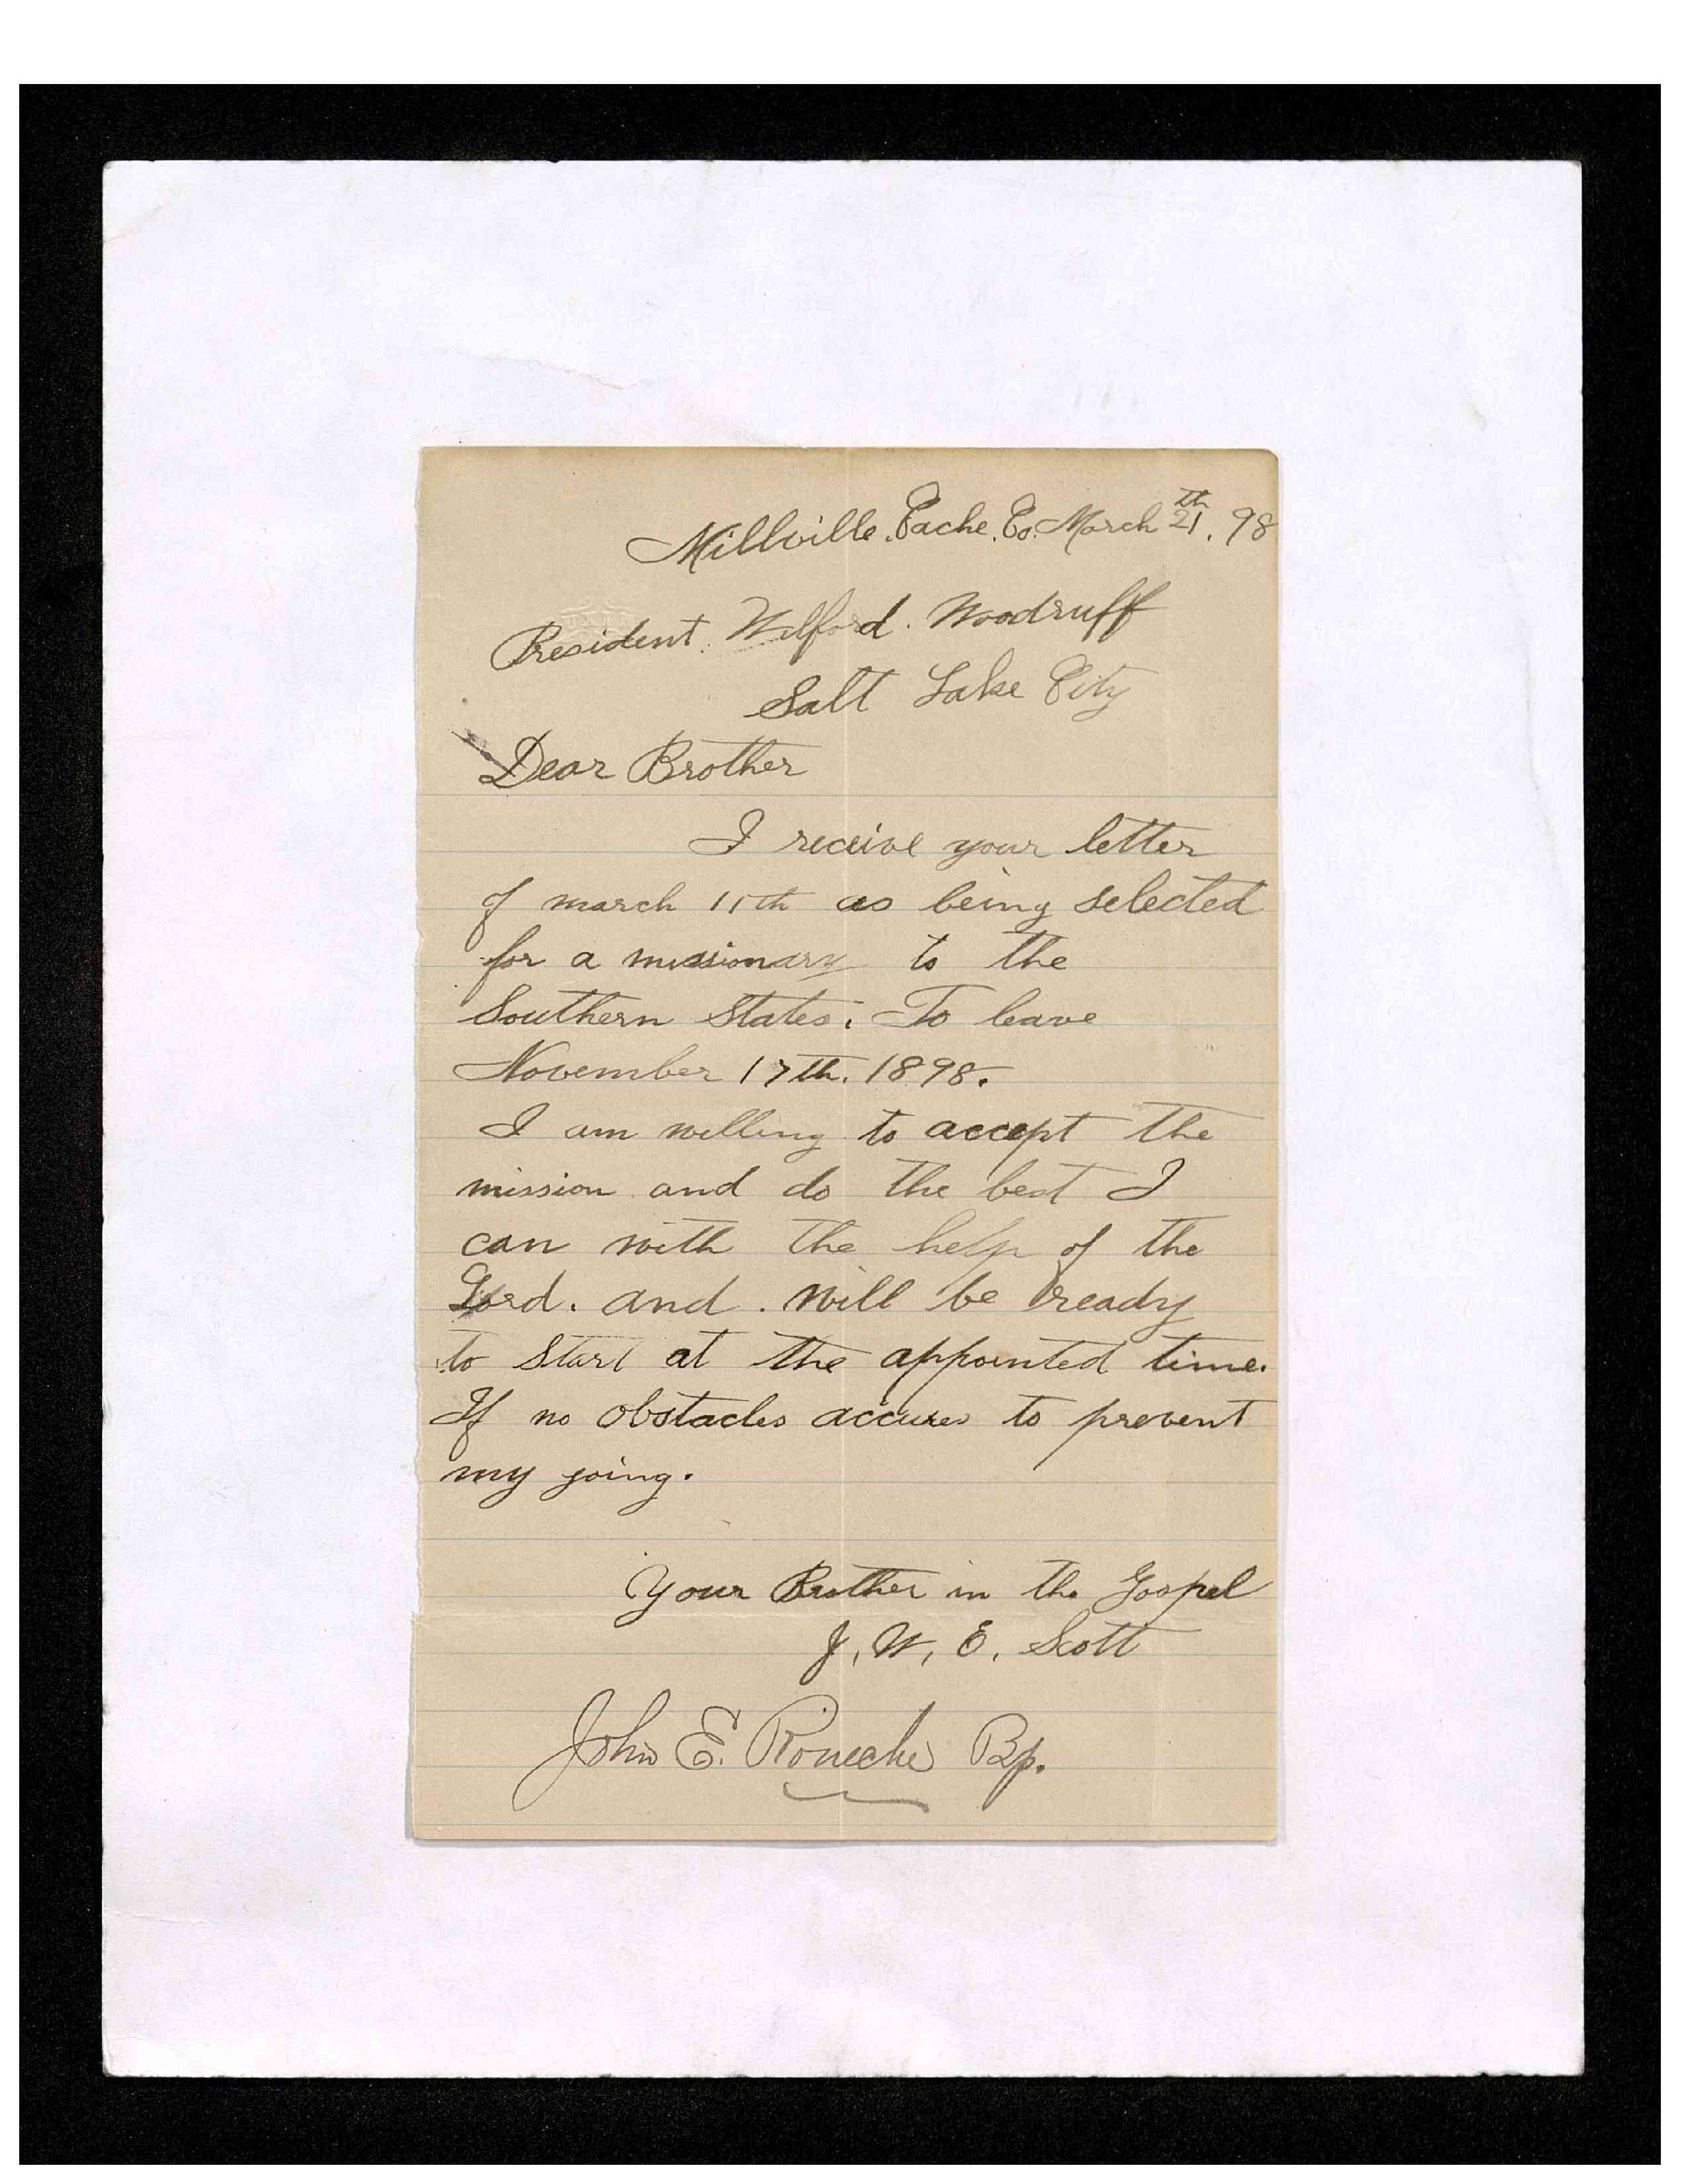 Millville. Cache. Co. March 21th. 98
President. Wilford. Woodruff
Salt Lake City
Dear Brother
I receive your letter
of march 11th as being selected
for a missionary to the
Southern States. To leave
November 17th. 1898.
I am willing to accept the
mission and do the best I
can with the help of the
Lord. and. will be ready
to start at the appointed time.
If no obstacles accures to prevent
my going.
Your Brother in the Gospel
J, W, E, Scott
John E. Roueche Bp.